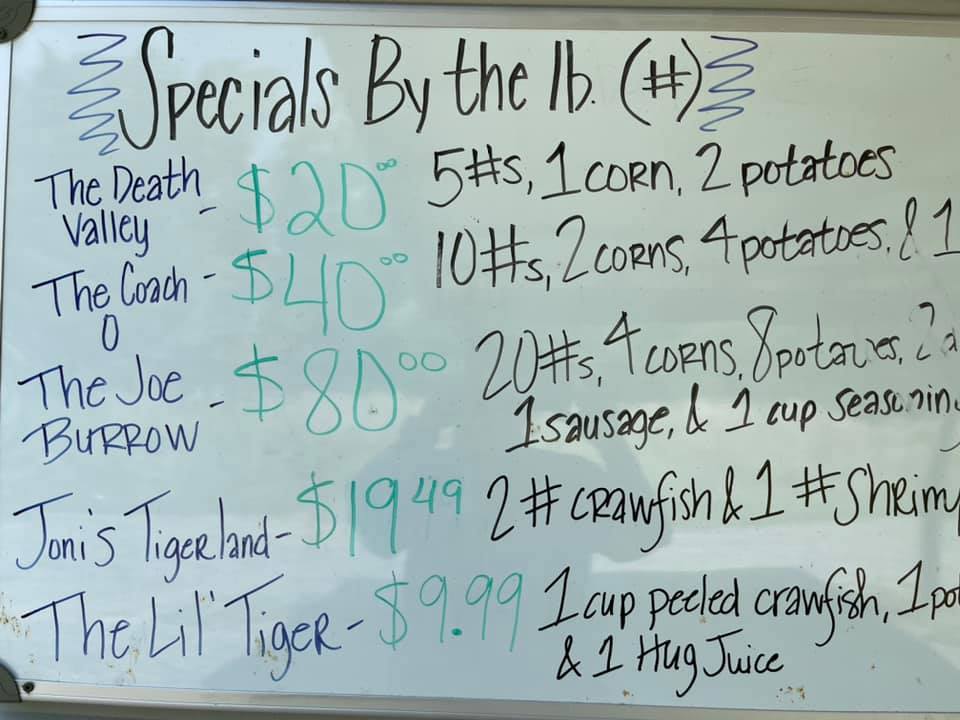 Specials By the lb. (#)
The Death Valley - $20.00 5#s, 1 corn, 2 potatoes
The Coach O - $40.00 10#s, 2 corns, 4 potatoes, & 1
The Joe Burrow - $80.00 20#s, 4 corns, 8 potatoes, 2
1 sausage, & 1 cup seasoning
Joni's Tigerland - $19.49 2 # crawfish & 1 # Shrimp
The Lil' Tiger - $9.99 1 cup peeled crawfish, 1
& 1 Hug Juice